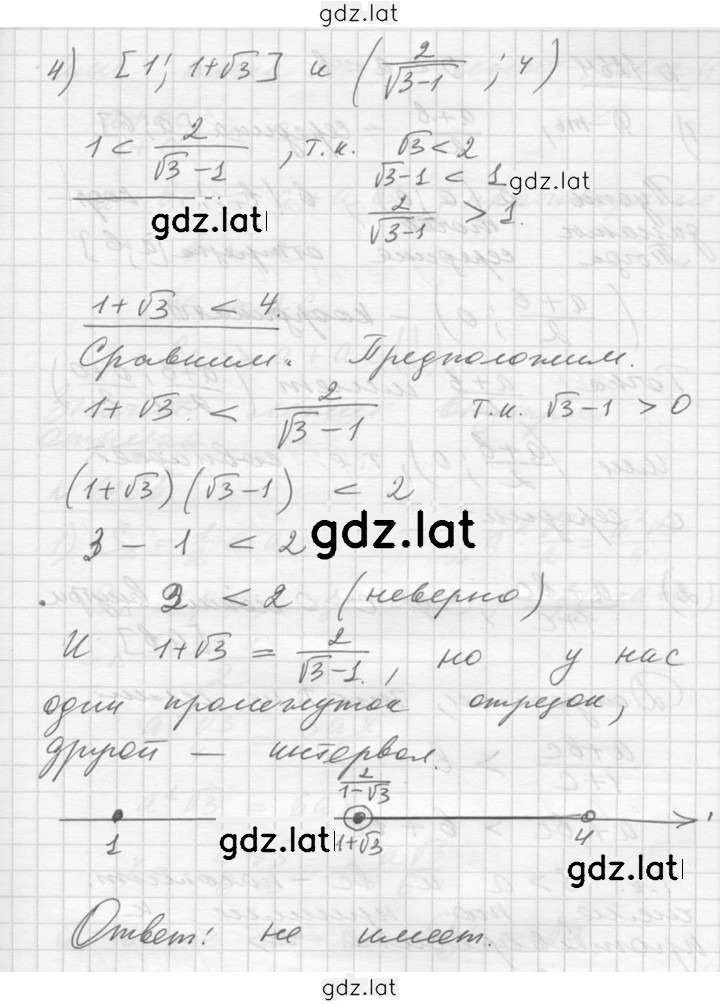 gdz.lat
4) [1; 1+√3] и (2/(√3-1); 4)
1 < 2/(√3-1), т.к. √3 < 2
√3-1 < 1
gdz.lat
2/(√3-1) > 1.
gdz.lat
1+√3 < 4.
Сравним. Предположим.
1+√3 < 2/(√3-1) т.к. √3-1 > 0
(1+√3)(√3-1) < 2
3 - 1 < 2
gdz.lat
2 < 2 (неверно)
И 1+√3 = 2/(√3-1), но у нас
один промежуток отрезок,
другой — интервал.
2/(1-√3)
1 1+√3 4
gdz.lat
gdz.lat
Ответ: не имеет.
gdz.lat